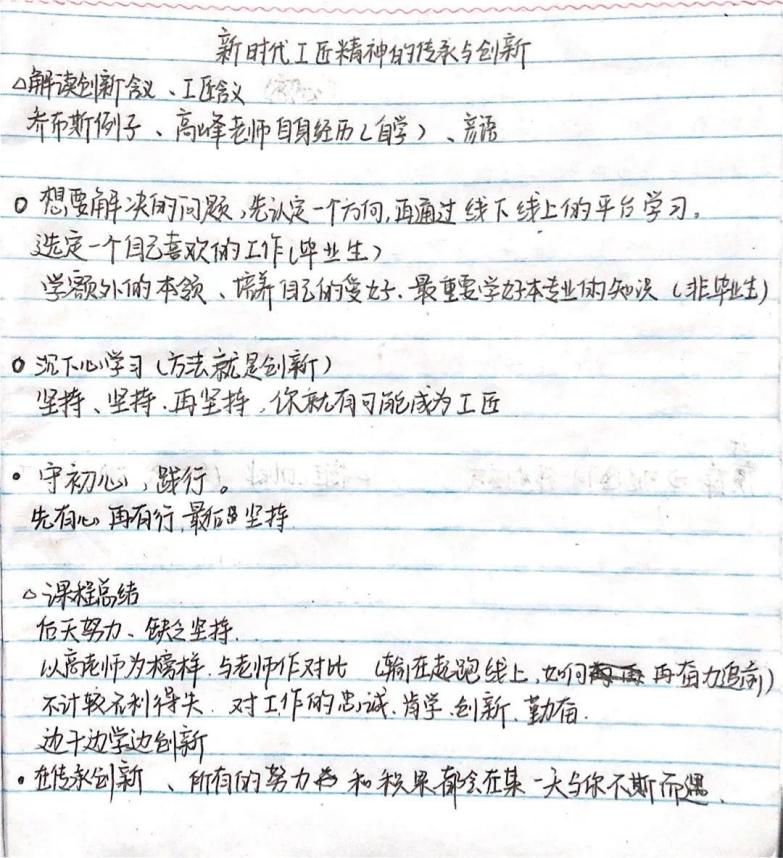 新时代工匠精神的传承与创新
△解读创新含义、工匠含义
乔布斯例子、高峰老师自身经历(自学)、言语
○ 想要解决的问题,先认定一个方向,再通过线下线上的平台学习。
选定一个自己喜欢的工作(毕业生)
学额外的本领、培养自己的爱好.最重要学好本专业的知识(非毕业生)
○ 沉下心学习(方法就是创新)
坚持、坚持.再坚持,你就有可能成为工匠
• 守初心,践行。
先有心 再有行,最后是坚持
△课程总结
后天努力、缺乏坚持.
以高老师为榜样.与老师作对比 (输在起跑线上,如何再奋力追前)
不计较名利得失.对工作的忠诚.肯学.创新.勤奋.
边干边学边创新
• 在传承创新、所有的努力和积累都会在某一天与你不斯而遇.